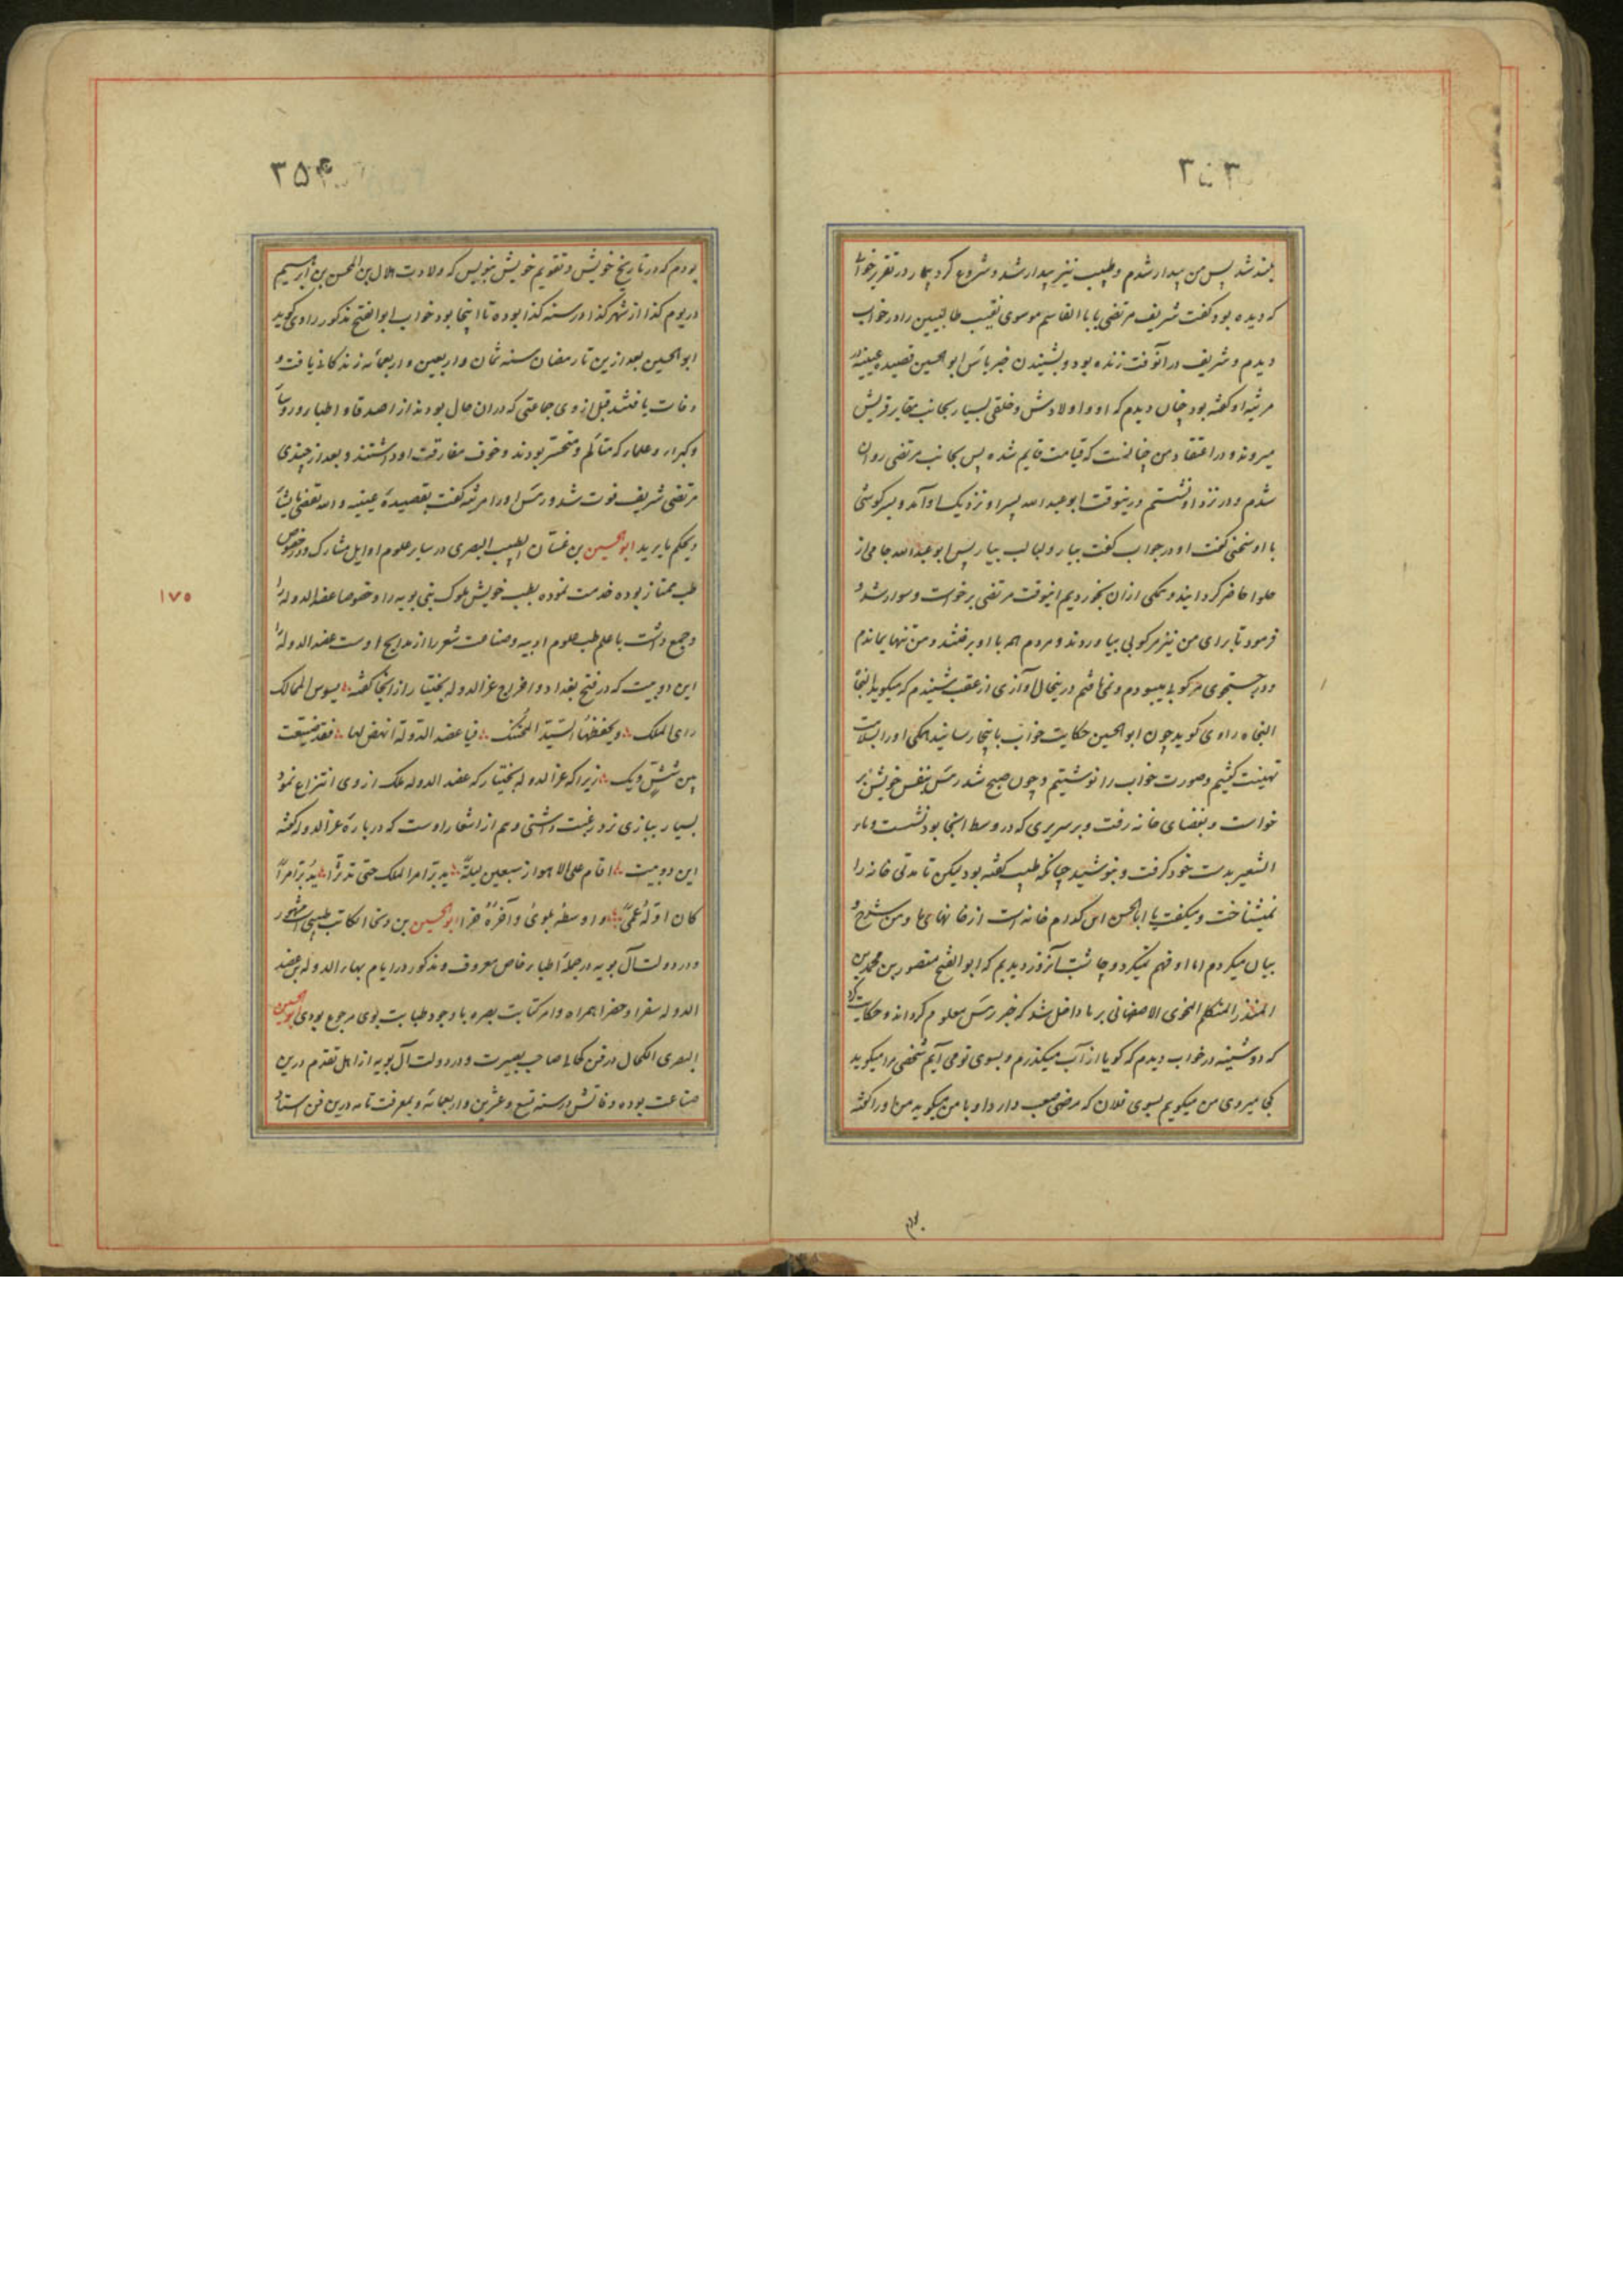 ۳۵۳
بلند شد پس من بیدار شدم و طبیب نیز بیدار شد و شروع کرد بیمار در تقریر خوابی
که دیده بود گفت شریف مرتضی بابا القاسم موسوی نقیب طالبیین را در خواب
دیدم و شریف در آنوقت زنده بود و بشنیدن خبر یأس ابو الحسین قصیده عینیه در
مرثیه او گفته بود چنان دیدم که او و اولادش و خلقی بسیار بجانب مقابر قریش
میروند و در اعتقاد من چنانست که قیامت قایم شده پس بجانب مرتضی روان
شدم و در نزد او نشستم درینوقت ابو عبد الله پسر او نزدیک او آمد و بسرگوشی
با او سخنی گفت او در جواب گفت بیار و لبالب بیار پس ابو عبد الله جامی از
حلوا حاضر گردانید و همکی ازان بخوردیم اینوقت مرتضی برخواست و سوار شد و
فرمود تا برای من نیز مرکوبی بیاوردند و مردم همه با او برفتند و من تنها بماندم
و در جستجوی مرکوبی میبودم و نمی یافتم درینحال آوازی از عقب شنیدم که میکوید النجاة
النجاة راوی کوید چون ابو الحسین حکایت خواب باینجا رسانید همکی او را بسلامت
تهنیت کفتیم و صورت خواب را نوشتیم و چون صبح شد رسش بنفس خویش بر
خواست و بفضای خانه رفت و بر سریری که در وسط انجا بود نشست و ماء
الشعیر بدست خود کرفت و بنوشید چنانکه طبیب کفته بود لیکن تا مدتی خانه را
نمیشناخت و میکفت یا ابا الحسن این کدام خانه است از خانهای ما و من شرح و
بیان میکردم اما او فهم نمیکرد و چاشت آنروز دیدیم که ابو الفتح منصور بن محمد بن
المنذر المتکلم النحوی الاصفهانی بر ما داخل شد که خبر رسش معلوم کرداند و حکایت کرد
که دوشینه در خواب دیدم که کویا از آب میکذرم و بسوی تو می آیم شخصی مرا میکوید
کجا میروی من میکویم بسوی فلان که مرضی صعب دارد او با من میکوید من او را کفته
بودم
۳۵۴
بودم که در تاریخ خویش و تقویم خویش بنویس که ولادت هلال بن المحسن بن ابراهیم
در یوم کذا از شهر کذا در سنه کذا بوده تا اینجا بود خواب ابو الفتح مذکور راوی کوید
ابو الحسین بعد ازین تا رمضان سنه ثمان و اربعین و اربعمائه زندکانی یافت و
وفات یافتند قبل از وی جماعتی که دران حال بودند از اصدقا و اطبا و رؤسا
و کبراء و علما که متألم و متحسر بودند و خوف مفارقت او داشتند و بعد از چندی
مرتضی شریف فوت شد و رسش او را مرثیه کفت بقصیدهٔ عینیه و الله یقضی ما یشاء
و یحکم ما یرید ابو الحسین بن غسان الطبیب البصری در سایر علوم اوایل مشارک و در خصوص
طب ممتاز بوده خدمت نموده بطب خویش ملوک بنی بویه را و خصوصا عضد الدوله را
و جمع داشت با علم طب علوم ادبیه و صناعت شعر را از مدایح اوست عضد الدوله را
این دو بیت که در فتح بغداد و اخراج عز الدوله بختیار از انجا کفته یسوس الممالک
رای الملک و یحفظها السید المحتنک فیا عضد الدولة انهض لها فقد ضیعت
بین شش و یک زیرا که عز الدوله بختیار که عضد الدوله ملک از وی انتزاع نمود
بسیار ببازی نرد رغبت داشتی و هم از اشعار اوست که در بارهٔ عز الدوله کفته
این دو بیت اقام علی الاهواز سبعین لیلة یدبر امر الملک حتی تدبرا یدبر امرا
کان اوله عمی و اوسطه بلوی و آخره خرا ابو الحسین بن دنحا الکاتب طبیبی مشهور
و در دولت آل بویه در جملهٔ اطباء خاص معروف و مذکور در ایام بهاء الدوله بن عضد
الدوله سفرا و حضرا همراه و امر کتابت بصره با وجود طبابت بوی مرجوع بودی ابو الحسین
البصری الکحال در فن کحالی صاحب بصیرت و در دولت آل بویه از اهل تقدم درین
صناعت بوده وفاتش در سنه تسع و عشرین و اربعمائه و بمعرفت تامه درین فن استاد
۱۷۵